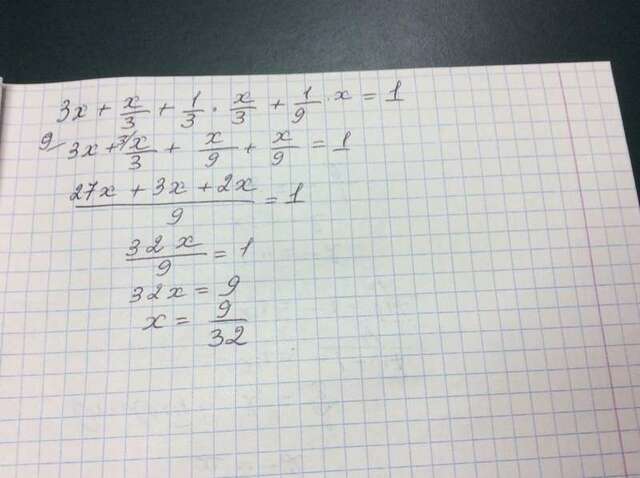 3x + x/3 + 1/3 · x/3 + 1/9 · x = 1
9/ 3x + 3/ x/3 + x/9 + x/9 = 1
(27x + 3x + 2x)/9 = 1
32x/9 = 1
32x = 9
x = 9/32